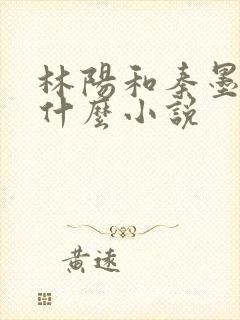 林陽和秦墨
什麼小說
黃遠